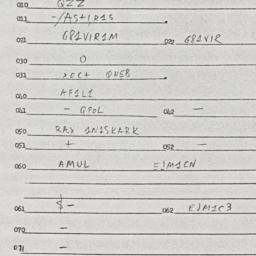 010 QZZ
011 -/AS+1R1S
021 G81VIR1M 022 G81VIR
030 O
031 XOC+ QHEB
040 AF1L1
041 - QFOL 042 -
050 RAX 1N1SKARK
051 + 052 -
060 AMUL E1M1CN
061 $ - 062 EJM1C3
070 -
071 -